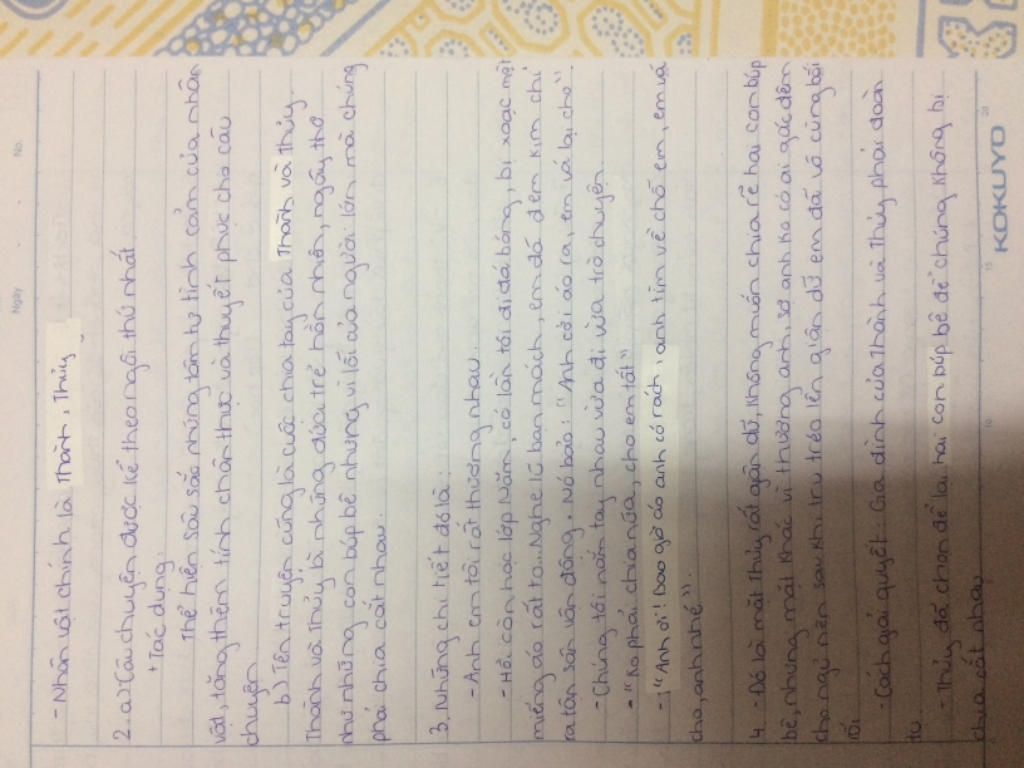 No.
Ngày
- Nhân vật chính là Thành, Thủy
2. a) Câu chuyện được kể theo ngôi thứ nhất.
+ Tác dụng:
Thể hiện sâu sắc những tâm tư tình cảm của nhân
vật, tăng thêm tính chân thực và thuyết phục cho câu
chuyện
b) Tên truyện cũng là cuộc chia tay của Thành và Thủy.
Thành và Thủy là những đứa trẻ hồn nhiên, ngây thơ
như những con búp bê nhưng vì lỗi của người lớn mà chúng
phải chia cắt nhau.
3. Những chi tiết đó là:
- Anh em tôi rất thương nhau
- Hồi còn học lớp Năm, có lần tôi đi đá bóng, bị xoạc một
miếng áo rất to... Nghe lũ bạn mách, em đã đem kim chỉ
ra tận sân vận động. Nó bảo: "Anh cởi áo ra, em vá lại cho".
- Chúng tôi nắm tay nhau vừa đi vừa trò chuyện.
- "Ko phải chia nữa, cho em tất"
- "Anh ơi! Bao giờ áo anh có rách, anh tìm về chỗ em, em vá
cho, anh nhé".
4 - Đó là mặt Thủy rất giận dữ, không muốn chia rẽ hai con búp
bê, nhưng mặt khác vì thương anh, sợ anh ko có ai gác đêm
cho ngủ nên sau khi tru tréo lên giận dữ em đã vô cùng bối
rối
- Cách giải quyết: Gia đình của Thành và Thủy phải đoàn
tụ.
- Thủy đã chọn để lại hai con búp bê để chúng không bị
chia cắt nhau
KOKUYO
10
15
20